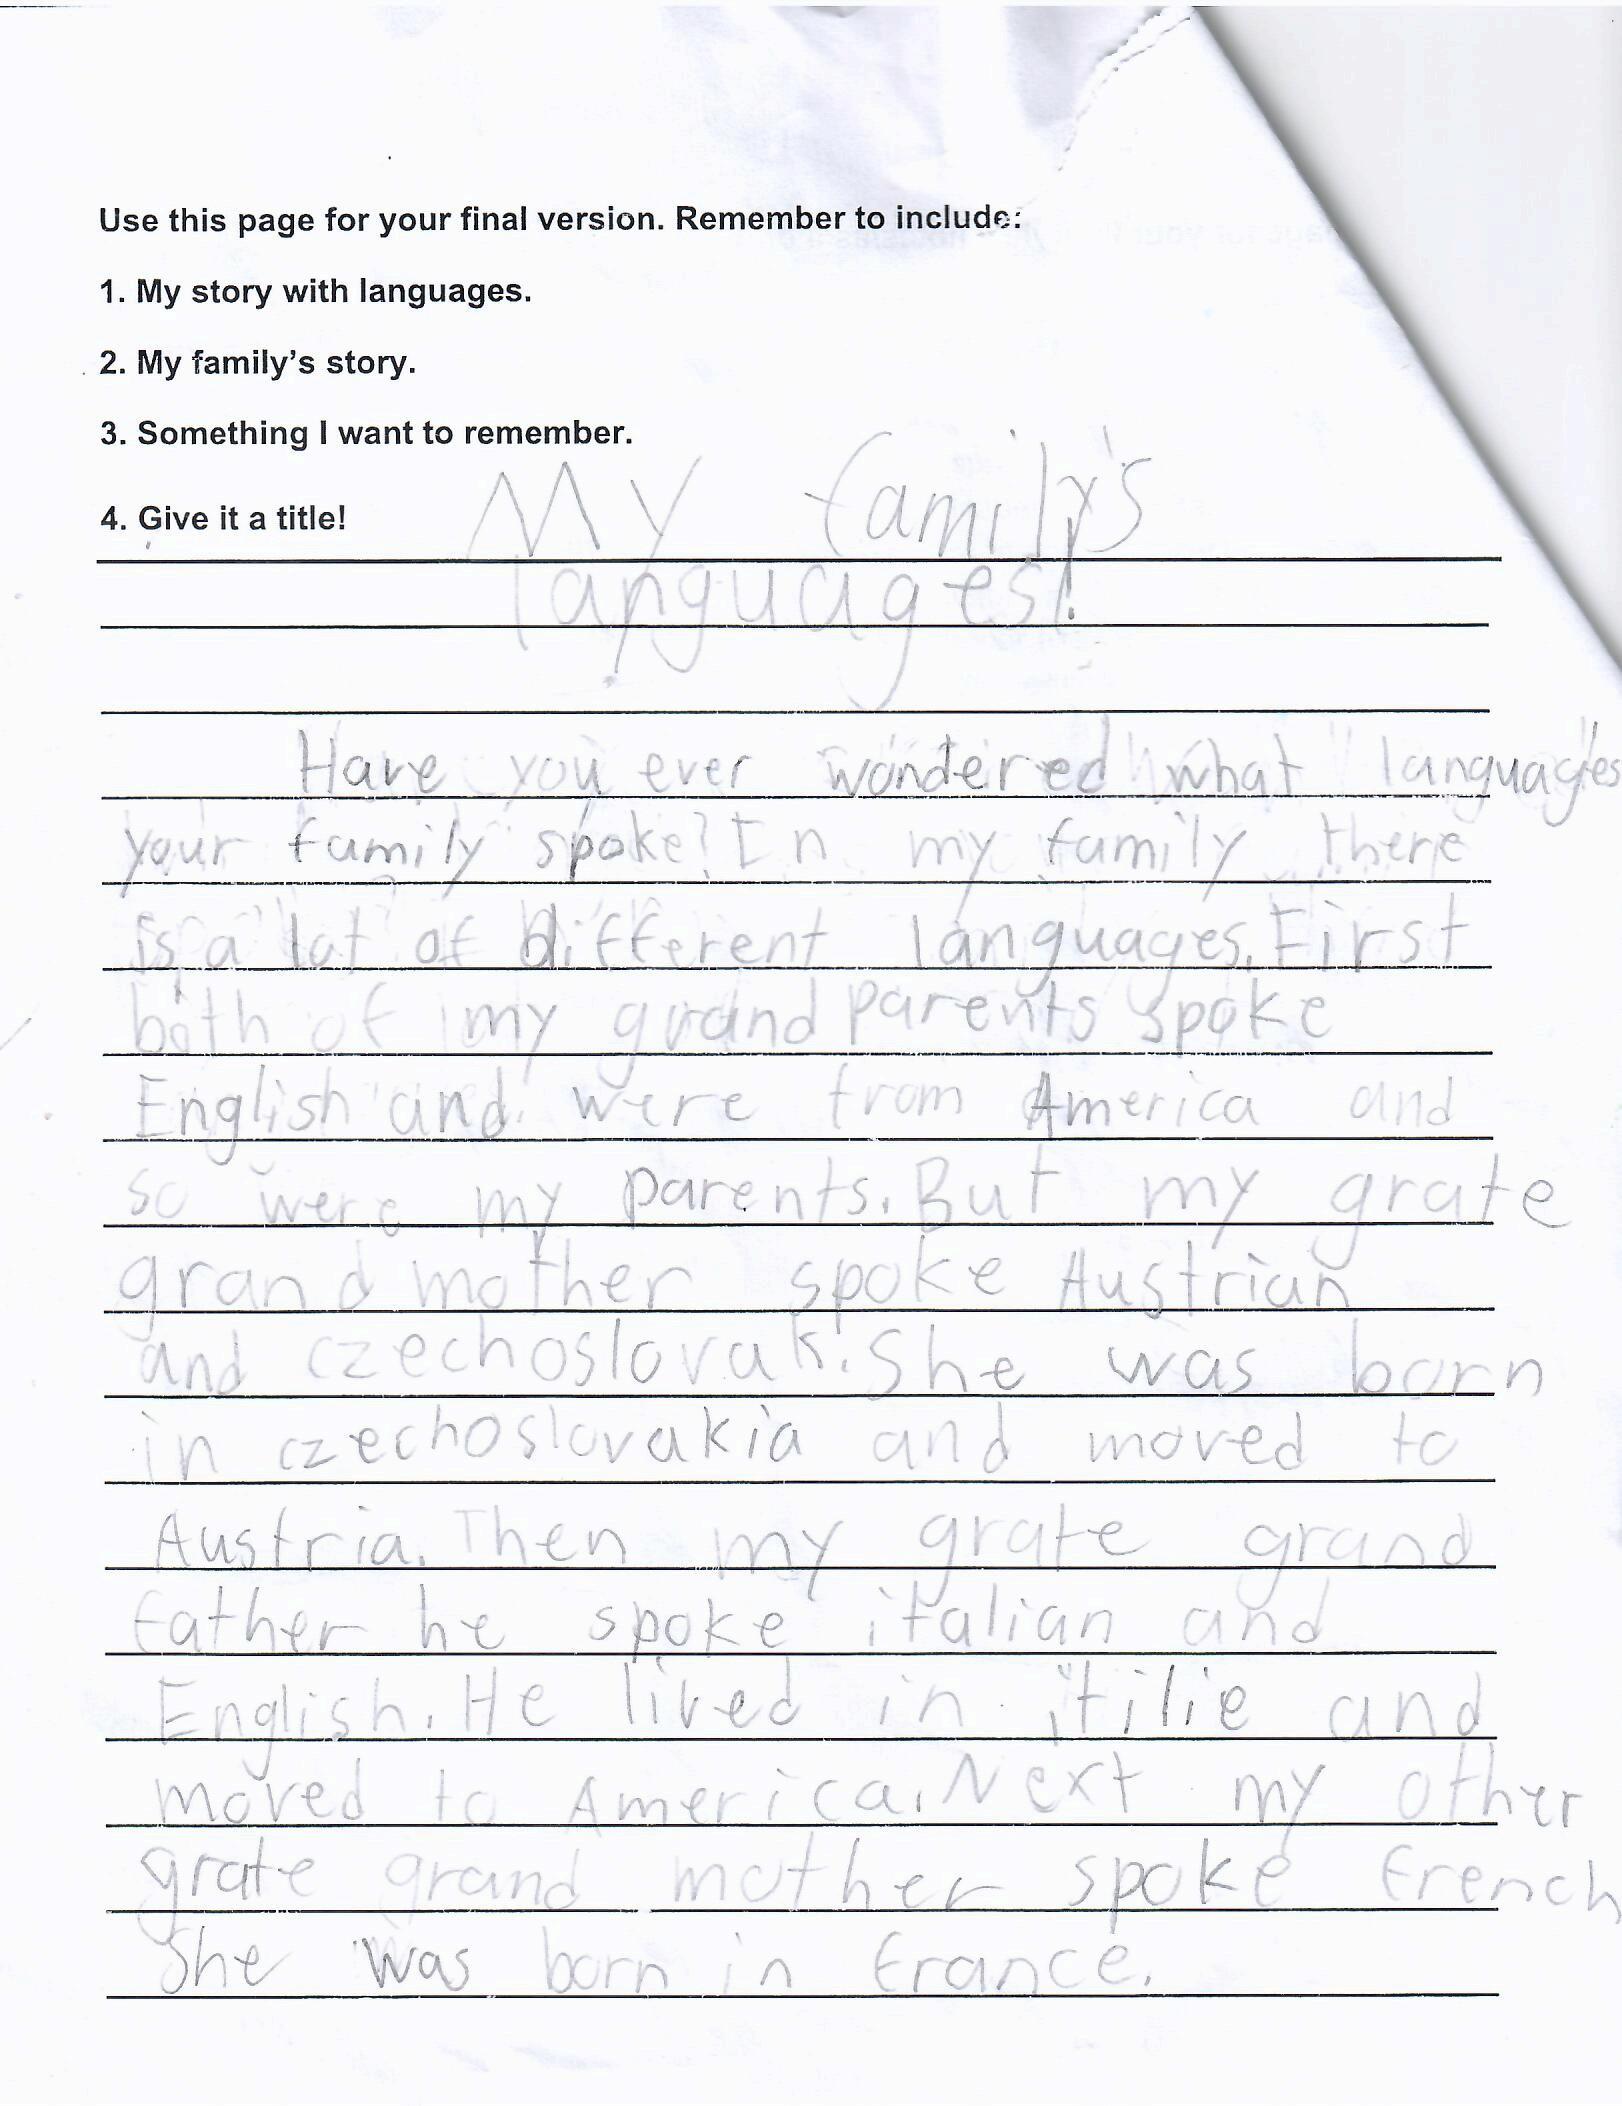 Use this page for your final version. Remember to include:
1. My story with languages.
2. My family's story.
3. Something I want to remember.
4. Give it a title!
My family's
languages!
Have you ever wondered what languages
your family spoke? In my family there
is a lot of different languages. First
both of my grand parents spoke
English and were from America and
so were my parents. But my grate
grand mother spoke Austrian
and czechoslovak. She was born
in czechoslovakia and moved to
Austria. Then my grate grand
father he spoke italian and
English. He lived in itilie and
moved to America. Next my other
grate grand mother spoke french
She was born in france.